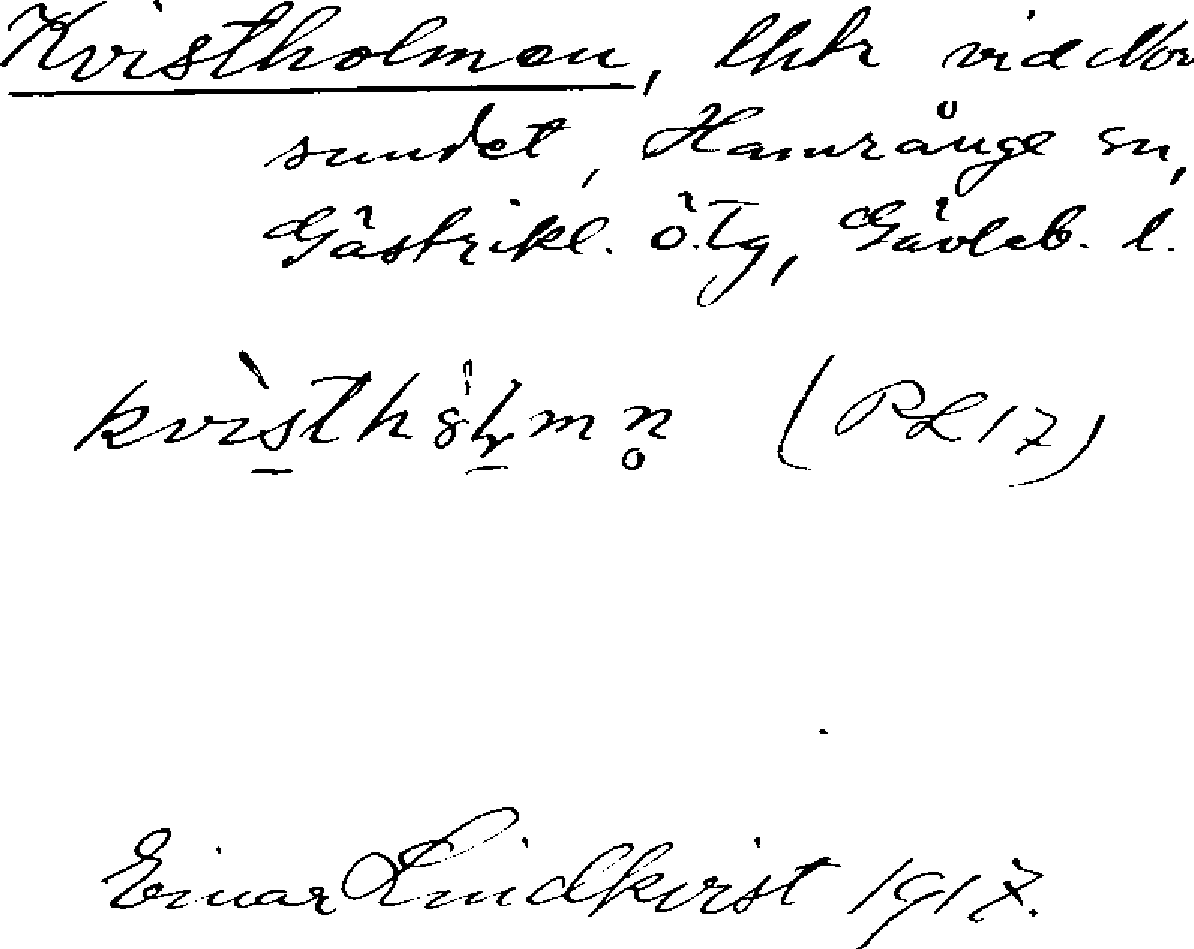 Kvistholmen, Uhr vid Nor
sundet, Hamrånge sn,
Gästrikl. ö. Tg, Gävleb. l.
kvìsthölmn̥ (PL17)
Einar Lindkvist 1917.